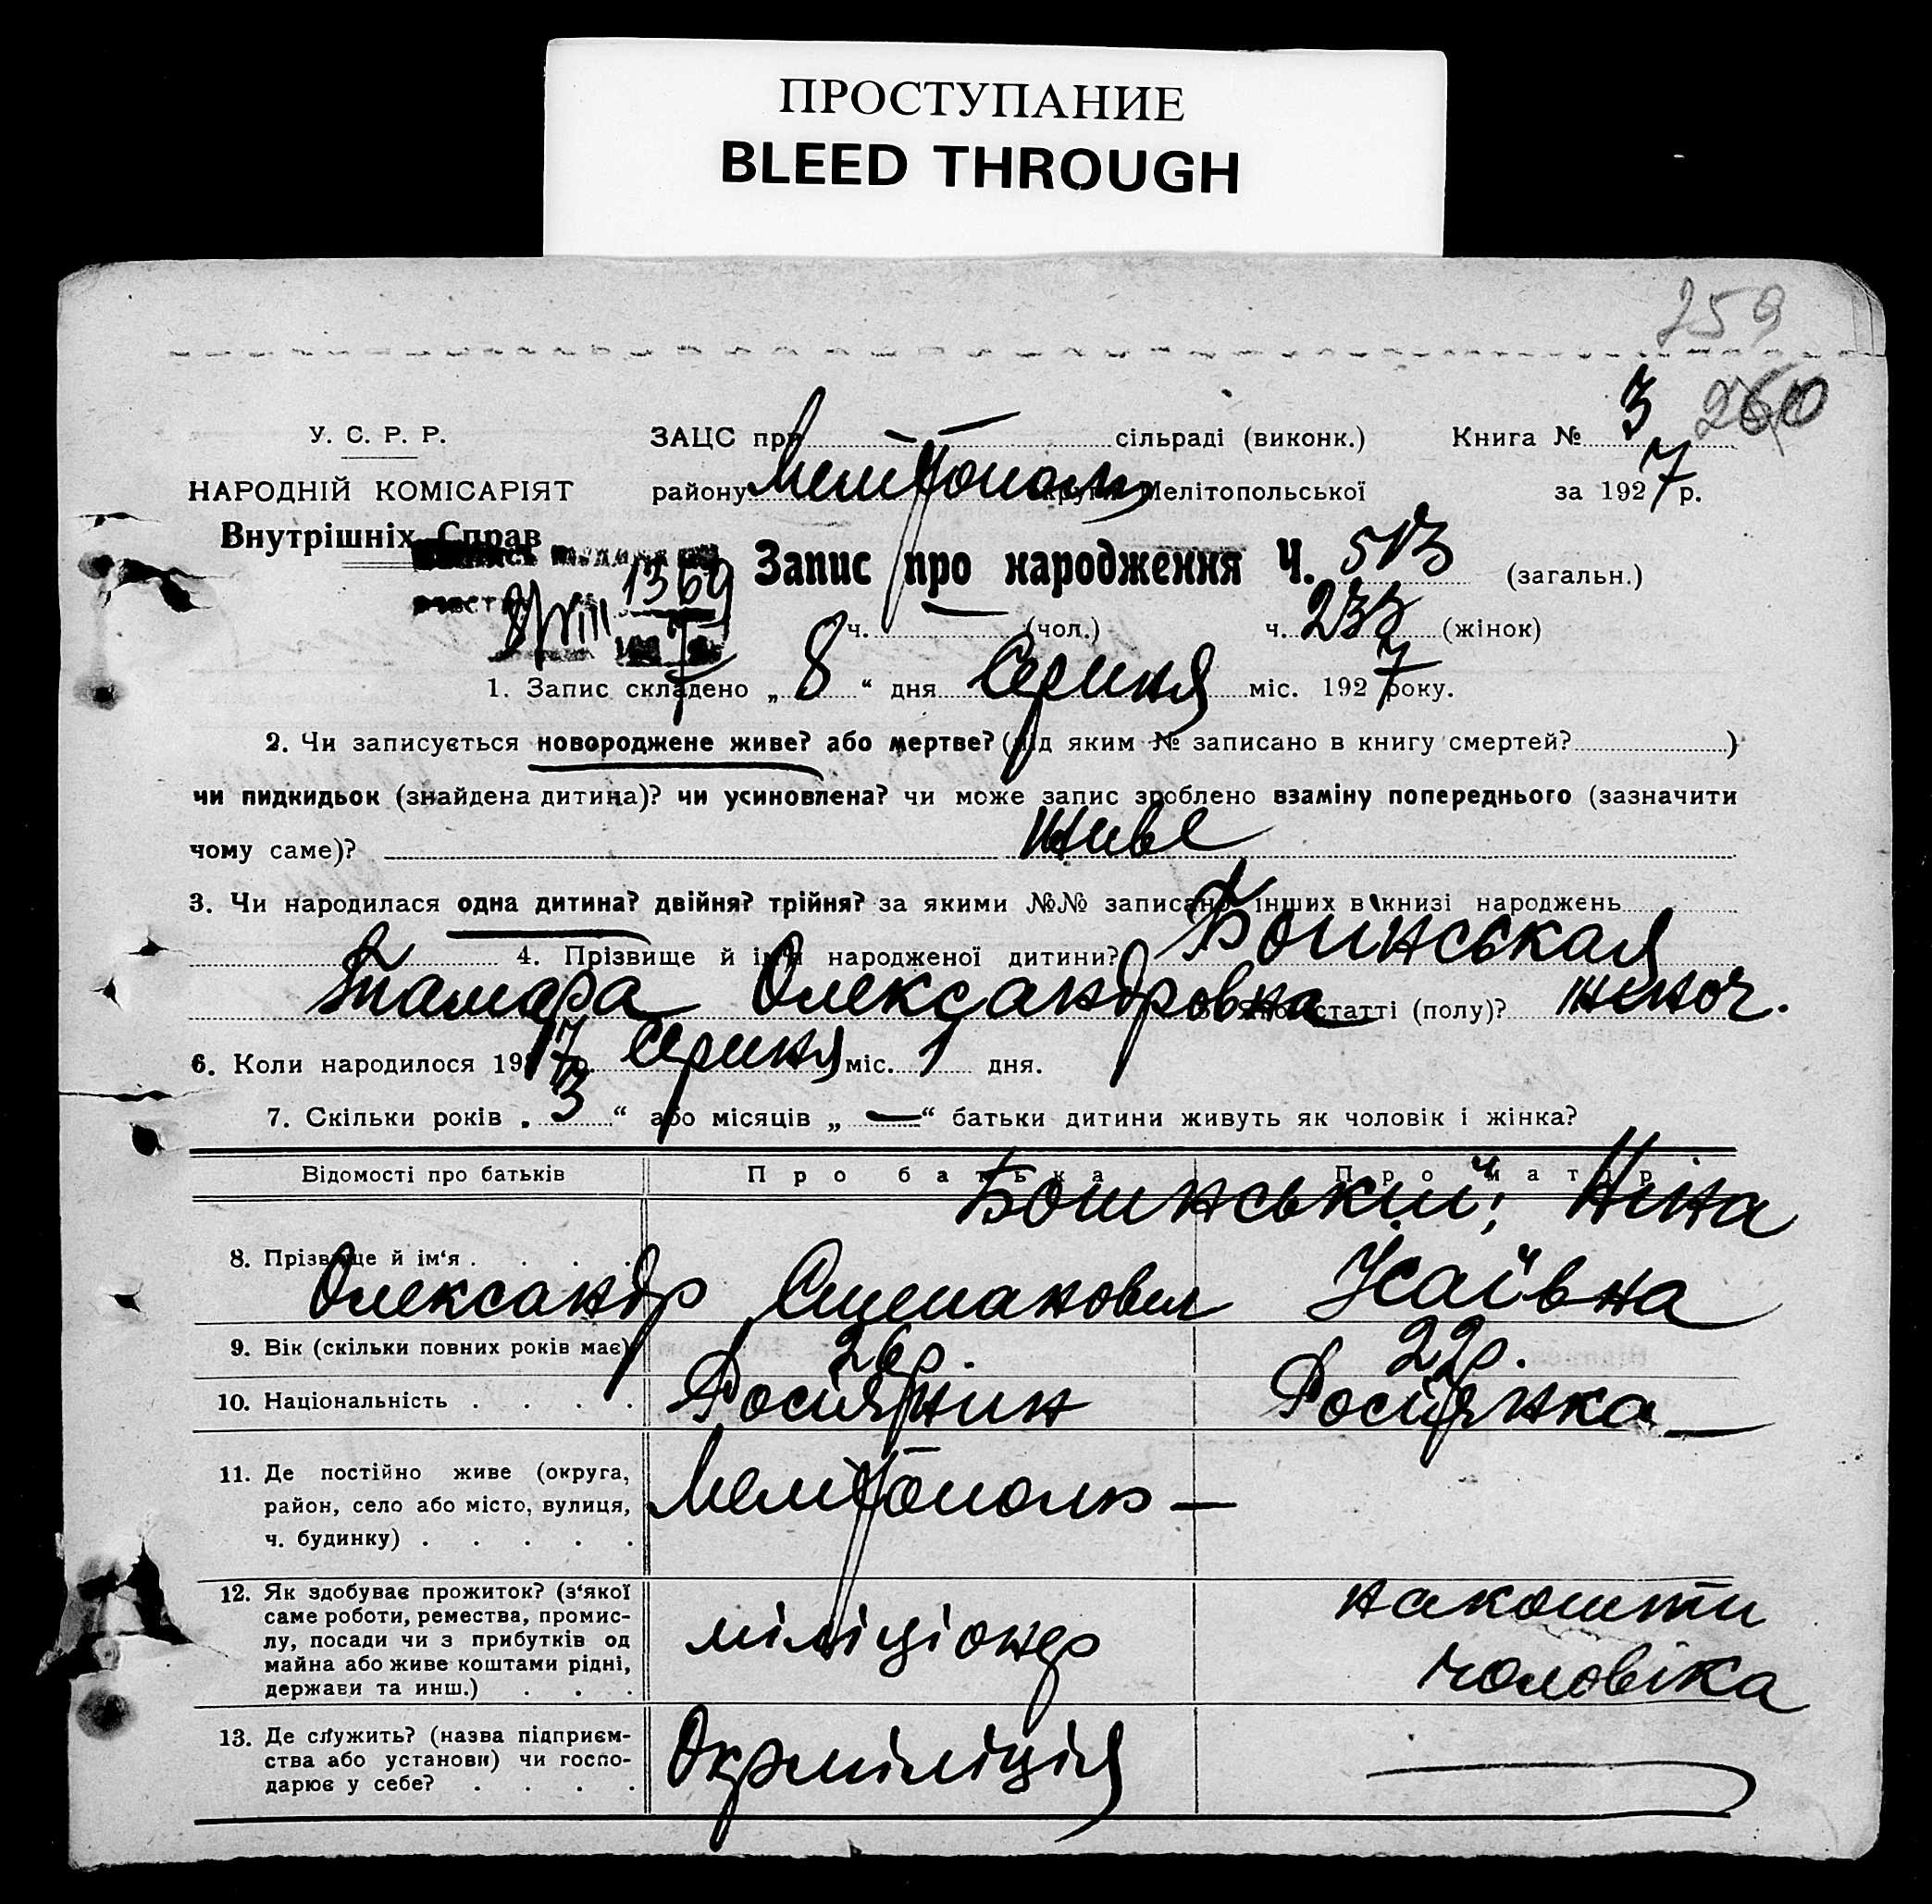 ПРОСТУПАНИЕ
BLEED THROUGH
259
260
У. С. Р. Р.
ЗАЦС при — сільраді (виконк.) Книга № 3
НАРОДНІЙ КОМІСАРІЯТ
району Мелітополь округи Мелітопольської за 1927 р.
Внутрішніх Справ
1369
8/VIII 7
Запис про народження Ч. 513 (загальн.)
ч. (чол.) ч. 233 (жінок)
1. Запис складено „ 8 “ дня Серпня міс. 1927 року.
2. Чи записується новороджене живе? або мертве? (під яким № записано в книгу смертей? )
чи пидкидьок (знайдена дитина)? чи усиновлена? чи може запис зроблено взаміну попереднього (зазначити
чому саме)? живе
3. Чи народилася одна дитина? двійня? трійня? за якими №№ записано інших в книзі народжень
4. Прізвище й імя народженої дитини?
Тамара Олександровна статті (полу)? жіноч.
6. Коли народилося 1927 р. Серпня міс. 1 дня.
7. Скільки років „ 3 “ або місяців „ — “ батьки дитини живуть як чоловік і жінка?
Відомості про батьків Про батька Про матір
Ніна
8. Прізвище й ім‘я . . . .
Олександр Степанович Ісаївна
9. Вік (скільки повних років має) 26 р. 22 р.
10. Національність . . . . Росіянин Росіянка
11. Де постійно живе (округа,
район, село або місто, вулиця,
ч. будинку) . . . . .
Мелітополь —
12. Як здобуває прожиток? (з‘якої
саме роботи, ремества, промис-
лу, посади чи з прибутків од
майна або живе коштами рідні,
держави та инш.) . . .
міліціонер
на кошти
чоловіка
13. Де служить? (назва підприєм-
ства або установи) чи госпо-
дарює у себе? . . . .
Окрміліція